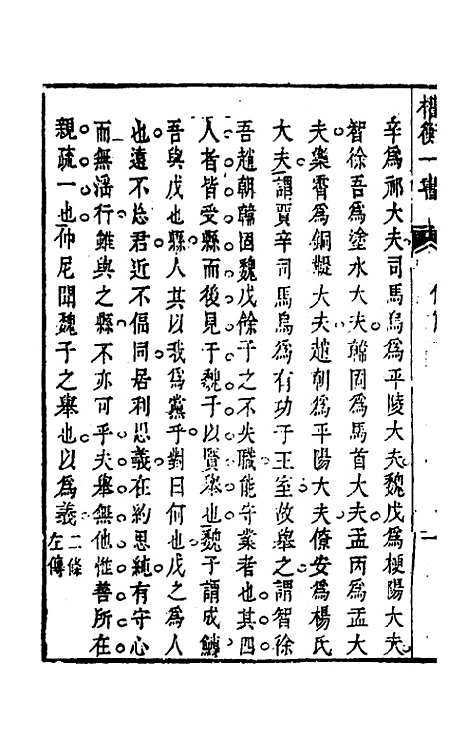 權衡一書
辛爲祁大夫司馬烏爲平陵大夫魏戊爲梗陽大夫
智徐吾爲塗水大夫韓固爲馬首大夫孟丙爲盂大
夫樂霄爲銅鞮大夫趙朝爲平陽大夫僚安爲楊氏
大夫謂賈辛司馬烏爲有功于王室故舉之謂智徐
吾趙朝韓固魏戊餘子之不失職能守業者也其四
人者皆受縣而後見于魏子以賢舉也魏子謂成鱄
吾與戊也縣人其以我爲黨乎對曰何也戊之爲人
也遠不忘君近不偪同居利思義在約思純有守心
而無滛行雖與之縣不亦可乎夫舉無他惟善所在
親疏一也仲尼聞魏子之舉也以爲義二條左傳